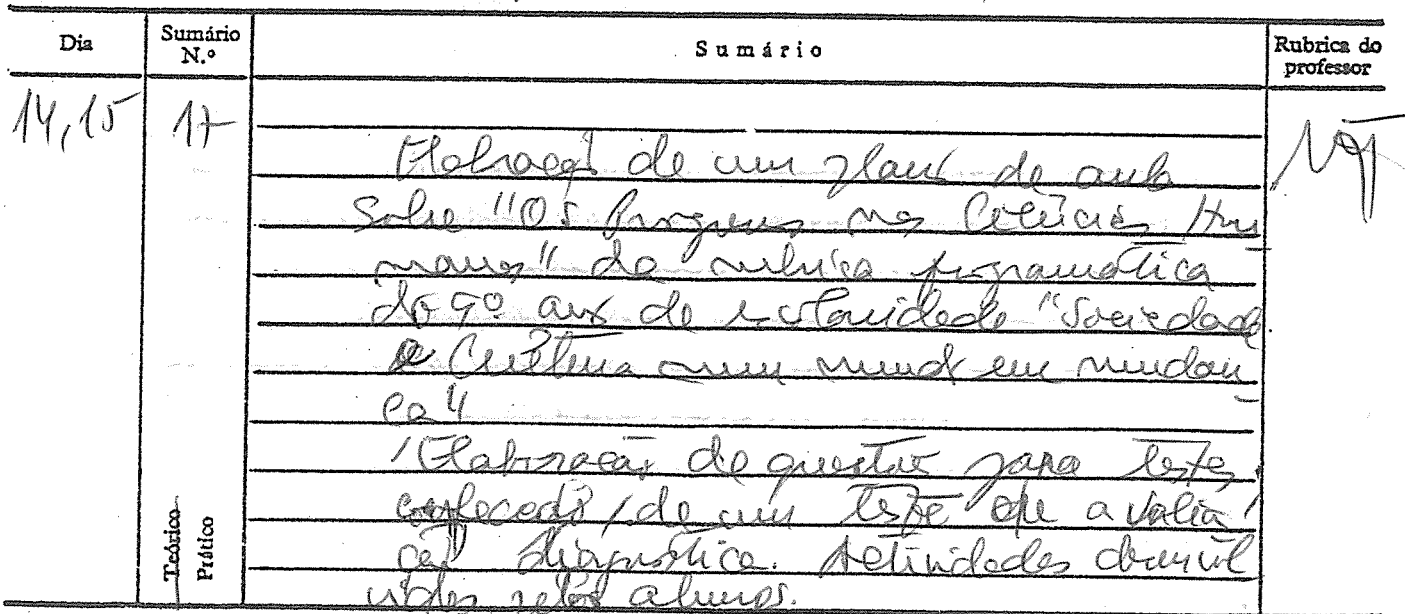 Dia Sumário N.º Sumário Rubrica do professor
14,15 17
Elaboração de um plano de aula
sobre "Os Progressos nas Ciências Hu
manas" da rubrica programática
do 9º ano de escolaridade "Sociedade
e Cultura num mundo em mudan
ça"
Elaboração de questões para testes,
de um teste de avalia
ção diagnóstica. Actividades desenvol
vidas pelos alunos.
Teórico
Prático